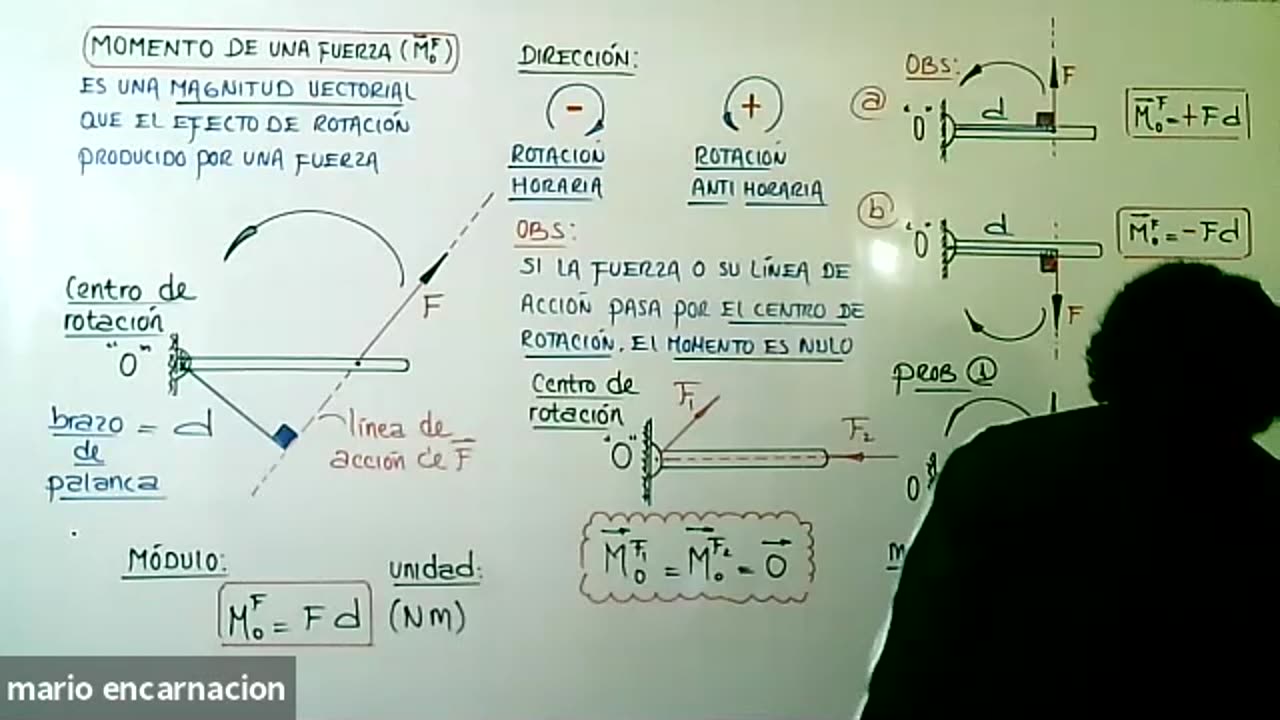 MOMENTO DE UNA FUERZA (M̅₀ᶠ)
ES UNA MAGNITUD VECTORIAL
QUE EL EFECTO DE ROTACIÓN
PRODUCIDO POR UNA FUERZA
Centro de
rotación
"O"
F
brazo = d
de
palanca
línea de
acción de F⃗
MÓDULO:
M₀ᶠ = Fd
unidad:
(Nm)
DIRECCIÓN:
-
+
ROTACIÓN
HORARIA
ROTACIÓN
ANTI HORARIA
OBS:
SI LA FUERZA O SU LÍNEA DE
ACCIÓN PASA POR EL CENTRO DE
ROTACIÓN, EL MOMENTO ES NULO
Centro de
rotación
"O"
F₁
F₂
M⃗₀ᶠ¹ = M⃗₀ᶠ² = 0⃗
OBS:
a
"O"
d
F
M̅₀ᶠ = +Fd
b
"O"
d
F
M̅₀ᶠ = -Fd
PROB 1
O
mario encarnacion